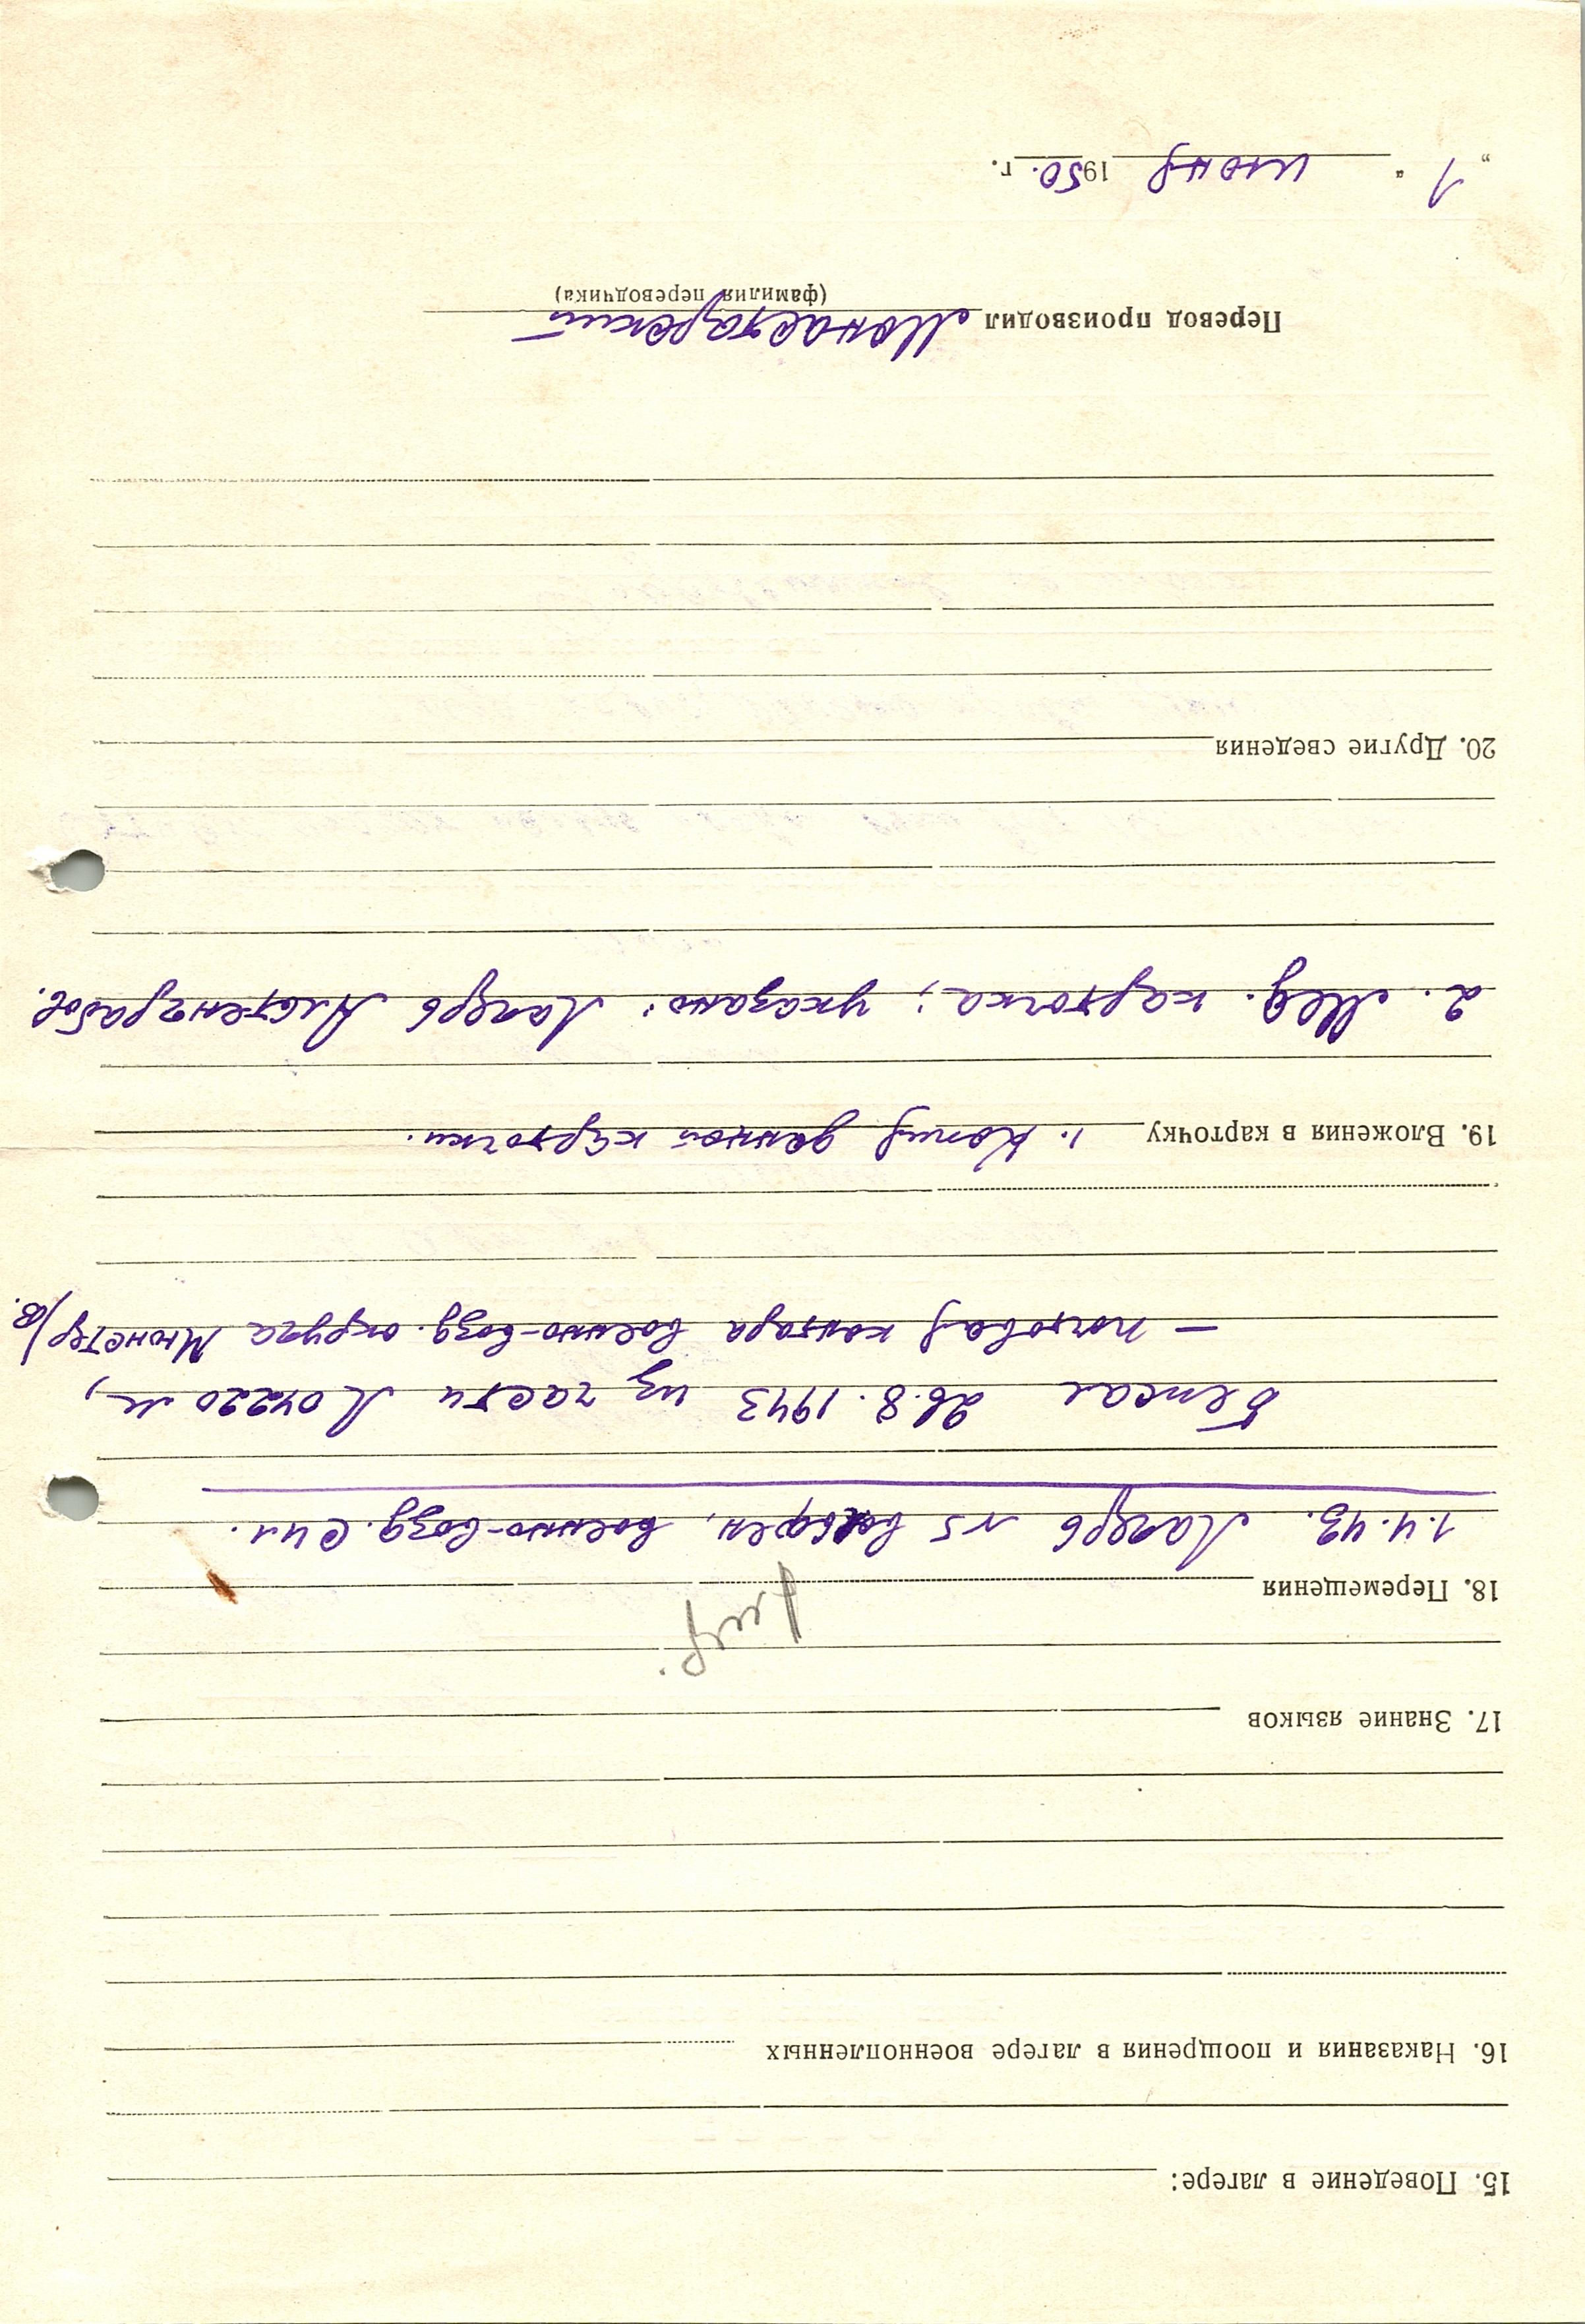 15. Поведение в лагере:
16. Наказания и поощрения в лагере военнопленных
17. Знание языков
18. Перемещения
1.4.43. Лагерь №5 военно-возд. сил.
Бежал 26.8.1943 из части Л 04220 м,
— почтовая контора военно-возд. округа Мюнстер/В.
19. Вложения в карточку 1. Копия данной карточки.
2. Мед. карточка; указано: Лагерь
20. Другие сведения
Перевод производил Монастарский
(фамилия переводчика)
„1“ июня 1950. г.